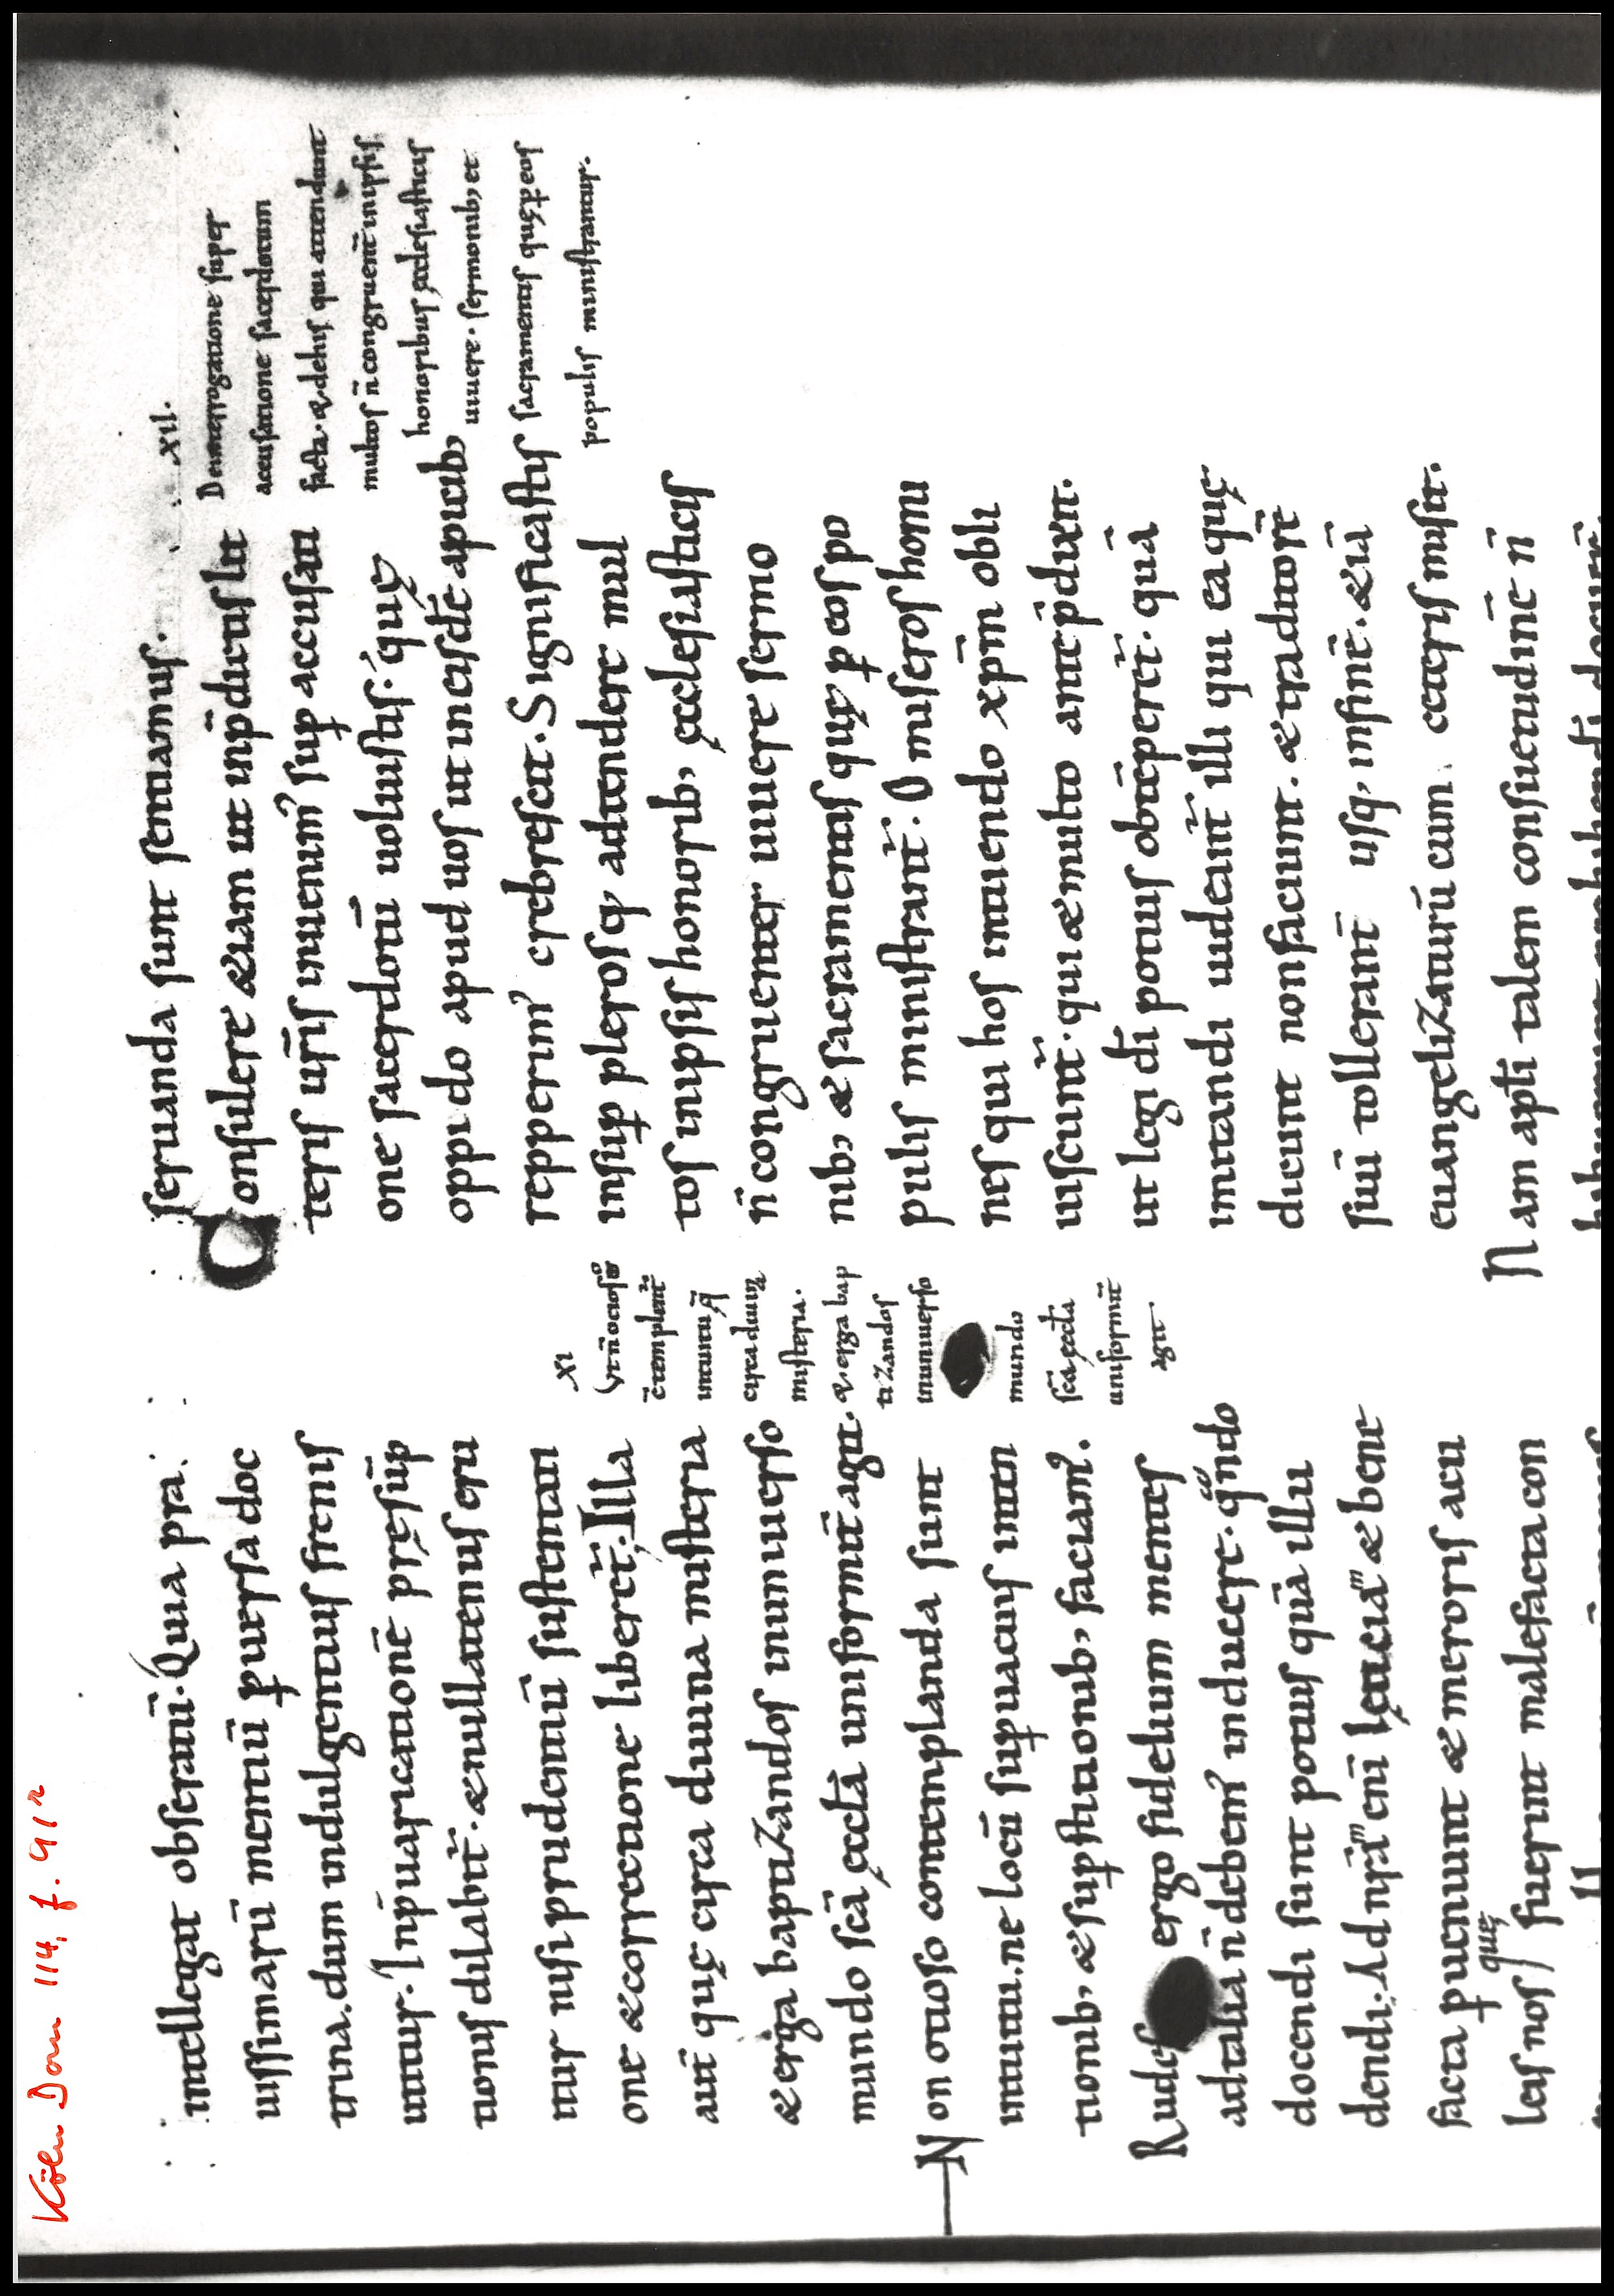 Köln Dom 114, f. 91r
intellegat obseratū. Quia pra
uissimarū mentiū ꝑuersa doc
trina. dum indulgentius frenis
utitur. In p̄uaricationē pręsūp
tionis dilabit̄. & nullatenus eru
itur nisi prudentiū sustentati
one & correctione libert̄. Illa
aut̄ quę circa diuina misteria
& erga baptizandos in uniuerso
mundo scā ęcclā uniformit̄ agit.
Non otioso contemplanda sunt
intuitu. ne locū suꝑuacuis inten
tionib; & suꝑstitionib; faciam᾿.
Rudes ergo fidelium mentes
ad talia n̄ debem᾿ inducere. qͦndo
docendi sunt potius quā illu
dendi. Ad nr̄aᵐ eni lętitiāᵐ & bene
facta ꝑueniunt & meroris acu
leis nos quę fuerint malefacta con
XI
Vt n̄ otioso
c̄templent̄
intuitu q̄
circa diuina
misteria.
& erga bap
tizandos
in uniuerso
mundo
scā ęccla
uniformit̄
agit
seruanda sunt sentiamus.
Consulere & iam ut in p̄dictis lit
teris ur̄is inuenim᾿ suꝑ accusati
one sacerdotū uoluistis. quę
oppido apud uos ut in eisdē apicib;
repperim᾿ crebrescit. Significastis
insuꝑ plerosq; adtendere mul
tos in ipsis honorib; ęcclesiasticis
n̄ congruenter uiuere sermo
nib; & sacramentis quę ꝑ eos po
pulis ministrant̄. O miseros homi
nes qui hos intuendo xp̄m obli
uiscunt̄. qui & multo ante p̄dixit.
ut legi dī potius obtēperet̄. quā
imitandi uideant̄ illi qui ea quę
dicunt non faciunt. & traditorē
suū tollerarit̄ usq; in finē. & eū
euangelizaturū cum ceteris misit.
Nam apl̄i talem consuetudinē n̄
XII.
De interrogatione super
accusatione sacerdotum
facta. & de his qui attendunt
multos n̄ congruent̄ in ipsis
honoribus ęcclesiasticis
uiuere. sermonib; et
sacramentis quę ꝑ eos
populis ministrantur.